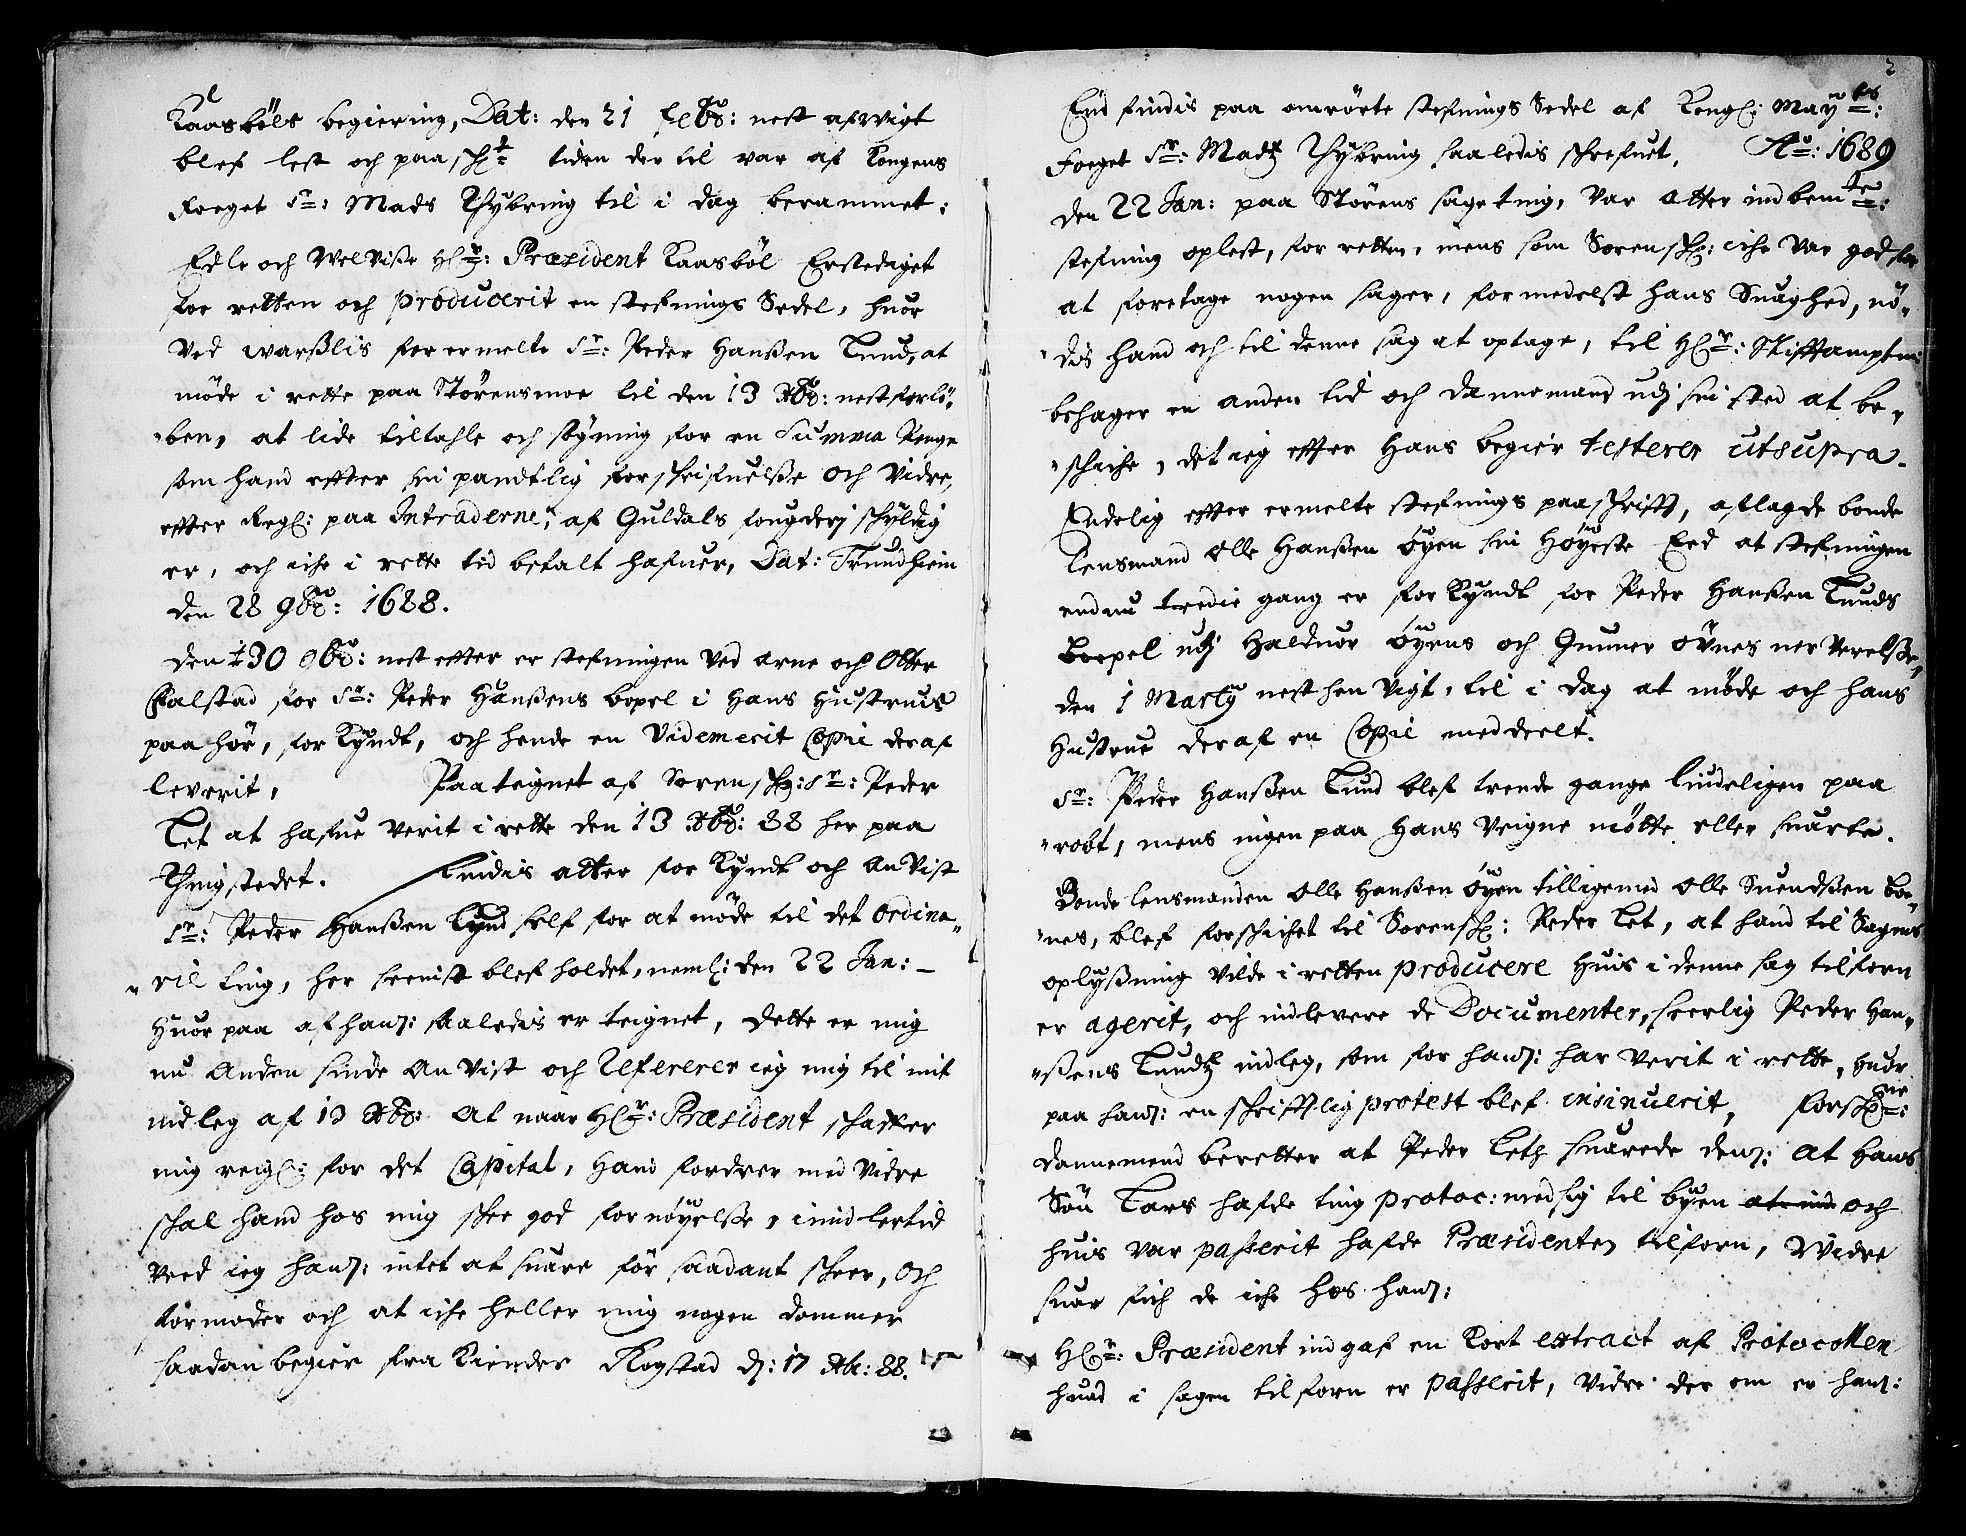 Kaasböls begiering, Dat: den 21 febr: nest afvigt
blef lest och paaschr: tiden der til var af Kongens
Foeget Sr: Mads Thybring til i dag berammet:
Edle och Welvise Hr: Præsident Kaasböl Erstediget
for retten och producerit en stefnings Sedel, huor
ved warßlis for ermelte Sr: Peder Hanßen Lund, at
möde i rette paa Störensmoe til den 13 Xbr: nest forlö-
ben, at lide tiltahle och sögning for en Summa Penge
som hand efter sin pandtlig forschrifuelße och vidre,
efter Regl: paa Intraderne, af Guldals fougderj schyldig
er, och iche i rette tid betalt hafuer, Dat: Trundhiem
den 28 9br: 1688.
Den 30 9br: nest efter er stefningen ved Arne och Otter
Falstad for Sr: Peder Hanßens bopel i hans Hustrues
paahör, forkyndt, och hende en Videmerit Copie deraf
leverit, Paateignet af Sorensch: Sr: Peder
Let at hafue verit i rette den 13 Xbr: 88 her paa
Thingstedet. Findis atter forkyndt och anvist
Sr: Peder Hanßen Lund self for at möde til det ordina-
ril ting, her seenist blef holdet, neml: den 22 Jan:
Huor paa af ham: saaledis er teignet, Dette er mig
nu anden sinde anvist och Refererer ieg mig til mit
indleg af 13 Xbr: at naar Hr: Præsident schaffer
mig reigl: for det Capital, hand fordrer med vidre
schal hand hos mig schee god fornöyelße, imidlertid
veed ieg ham: intet at suare för saadant scheer, och
formoder och at iche heller mig nogen dommer
saadan begier fra kiender Rogstad d: 17 Xbr: 88.
End findis paa omrörte stefnings Sedel af Kongl: Mayts:
Foeget Sr: Madtz Thybring saaledis schrefuet, Ao: 1689
den 22 Jan: paa Störens sageting, var atter indbemte:
stefning oplest, for retten, mens som Sorensch: iche var god for
at foretage nogen sager, formedelst hans Suaghed, nö-
dis hand och til denne sag at optage, til Hr: Stifftamptm:
behager en anden tid och Dannemand udj sin sted at be-
schiche, det ieg effter hans begier testerer utsupra.
Endelig effter ermelte stefnings paaschrifft, aflagde bonde
Lensmand Olle Hanßen öyen sin Höyeste Eed at stefningen
endnu tredie gang er forkyndt for Peder Hanßen Lunds
boepel udj Halduor öyens och Gunner öunes nerverelße,
den 1 Martij nest hen vigt, til i dag at möde och hans
Hustrue deraf en Copie meddeelt.
Sr: Peder Hanßen Lund blef trende gange liudeligen paa
robt, mens ingen paa hans veigne mötte eller suarte.
Bonde lensmanden Olle Hanßen öyen tilligemed Olle Suendßen bo-
nes, blef forschichet til Sorensch: Peder Let, at hand til Sagens
oplyßning vilde i retten producere huis i denne sag tilforn
er agerit, och indlevere de Documenter, serlig Peder Han-
ßens Lundtz indleg, som for ham: har verit i rette, huor
paa ham: en schrifftlig protest blef insinuerit, Forschne:
Dannemend beretter at Peder Leth suarede dem: at hans
Sön Lars hafde ting protoc: med sig til byen och
huis var passerit hafde Præsidenten tilforn, Widre
suar fich de iche hos ham:
Hr: Præsident indgaf en kort extract af Protocollen
huad i sagen tilforn er passerit, vidre der om er ham: